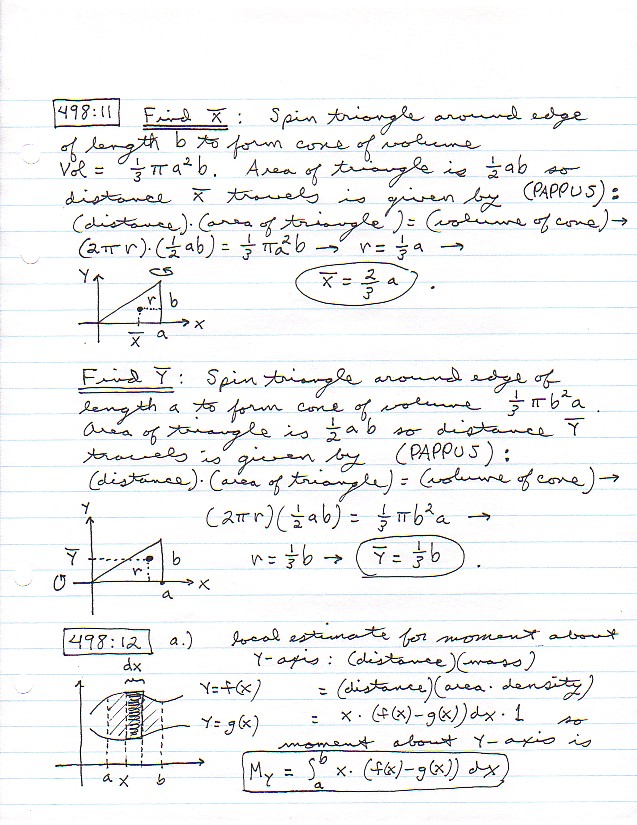 498:11 Find X̄ : Spin triangle around edge
of length b to form cone of volume
Vol = 1/3 π a² b. Area of triangle is 1/2 ab so
distance X̄ travels is given by (PAPPUS) :
(distance)·(area of triangle) = (volume of cone) →
(2πr)·(1/2 ab) = 1/3 πa²b → r = 1/3 a →
X̄ = 2/3 a .
Y r b X̄ a X
Find Ȳ : Spin triangle around edge of
length a to form cone of volume 1/3 πb²a .
Area of triangle is 1/2 ab so distance Ȳ
travels is given by (PAPPUS) :
(distance)·(area of triangle) = (volume of cone) →
(2πr)(1/2 ab) = 1/3 πb²a →
r = 1/3 b → Ȳ = 1/3 b .
Y Ȳ r b a X
498:12 a.) local estimate for moment about
Y-axis : (distance)(mass)
dx
Y=f(x) = (distance)(area · density)
Y=g(x) = x · (f(x)-g(x))dx · 1 so
moment about Y-axis is
a x b
M_Y = ∫_a^b x · (f(x)-g(x)) dx